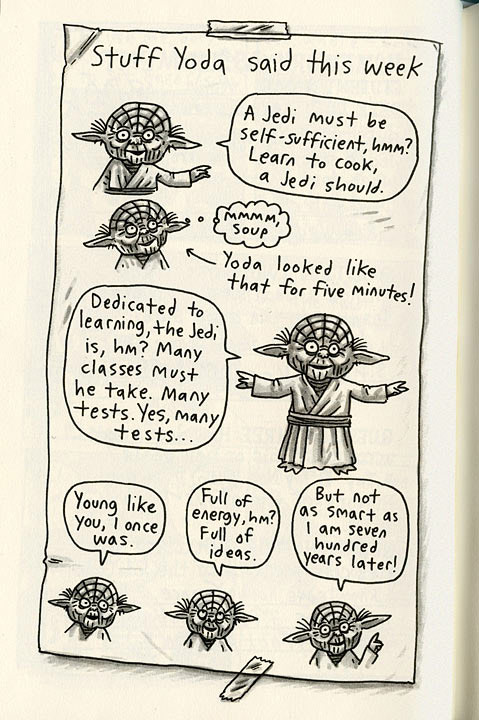 Stuff Yoda said this week
A Jedi must be
self-sufficient, hmm?
Learn to cook,
a Jedi should.
MMMM,
SOUP
Yoda looked like
that for five minutes!
Dedicated to
learning, the Jedi
is, hm? Many
classes must
he take. Many
tests. Yes, many
tests...
Young like
you, I once
was.
Full of
energy, hm?
Full of
ideas.
But not
as smart as
I am seven
hundred
years later!